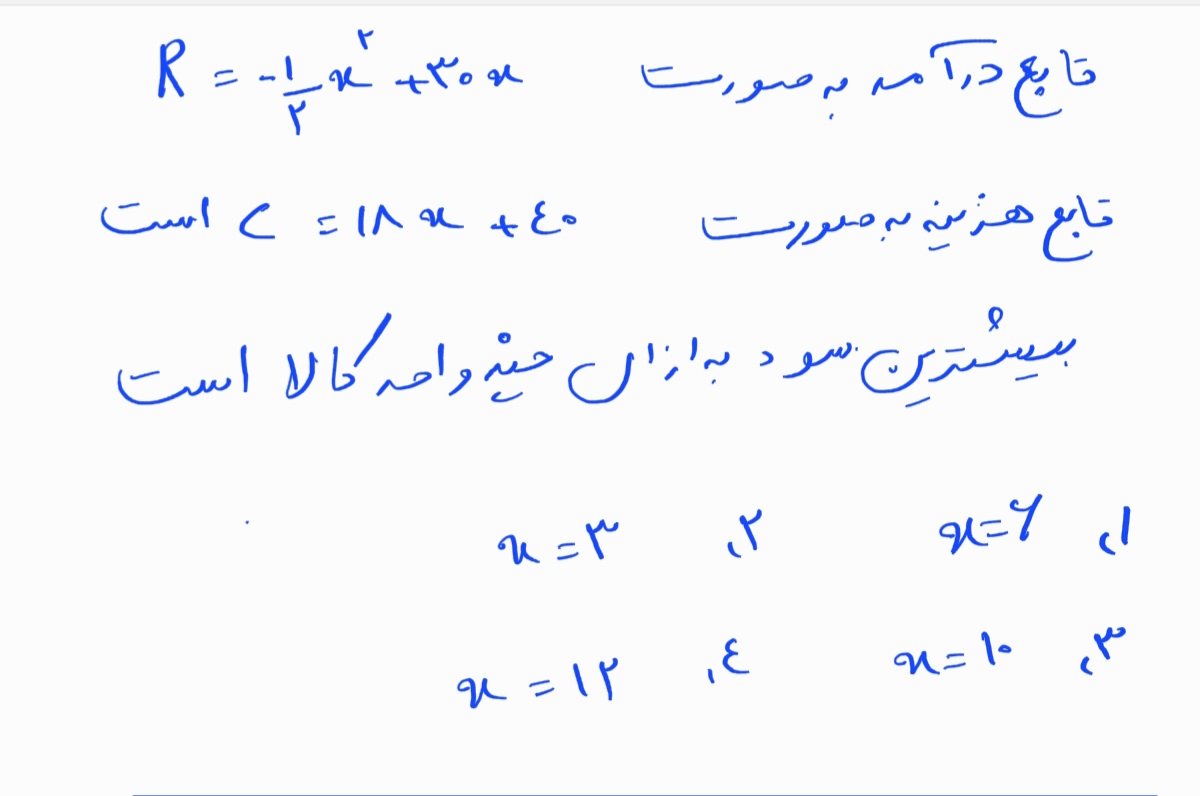 تابع درآمد به صورت R = -۱/۲ x^۲ + ۳۰x
تابع هزینه به صورت C = ۱۸x + ٤۰ است
بیشترین سود به ازای چند واحد کالا است؟
۱, x = ۶ ۲, x = ۳
۳, x = ۱۰ ٤, x = ۱۲